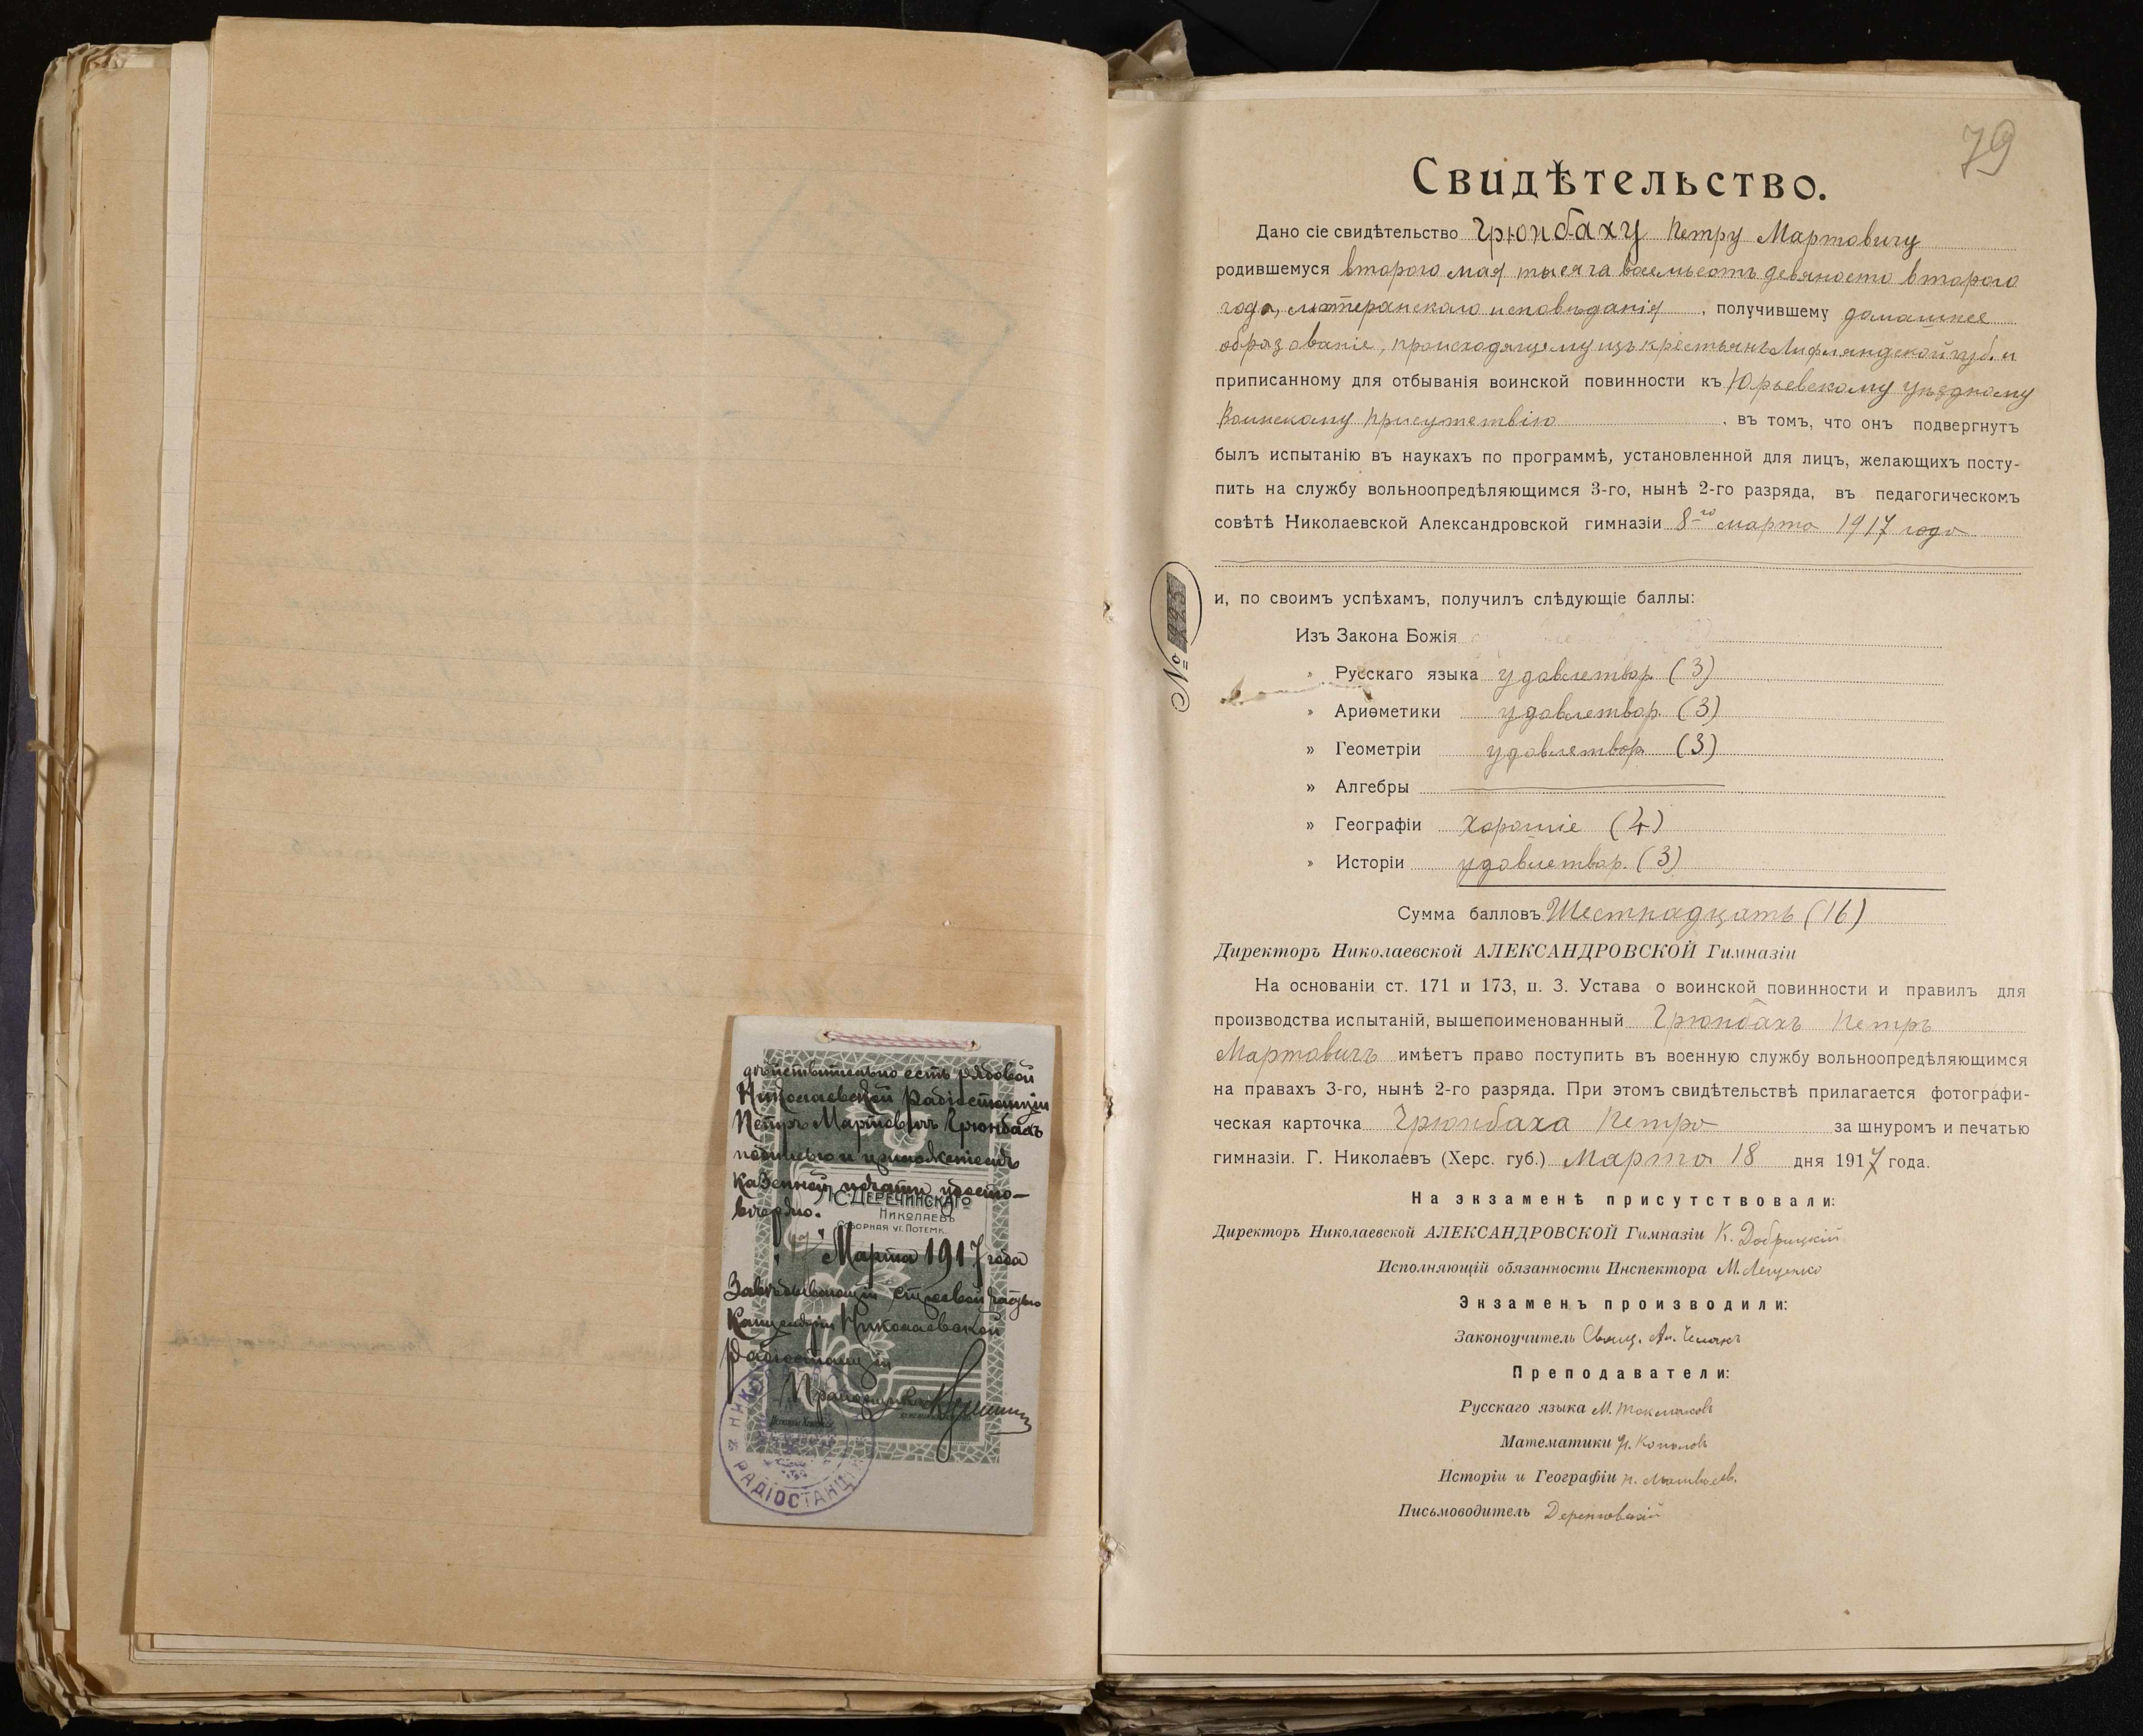 дѣйствительно есть рядовой
Николаевской Радіостанціи
Петръ Мартовичъ Грюнбахъ
подписью и приложеніемъ
казенной печати удосто-
вѣряю.
С. ДЕРЕЧИНСКАГО
НИКОЛАЕВЪ
СОБОРНАЯ УГ. ПОТЕМК.
" Марта 1917 года
Завѣдывающій строевой частью
Канцеляріи Николаевской
Радіостанціи
Прапорщикъ
РАДІОСТАНЦІЯ
79
Свидѣтельство.
Дано сіе свидѣтельство Грюнбаху Петру Мартовичу
родившемуся второго мая тысяча восемьсотъ девяносто второго
года, лютеранскаго исповѣданія, получившему домашнее
образованіе, происходящему изъ крестьянъ Лифляндской губ. и
приписанному для отбыванія воинской повинности къ Юрьевскому уѣздному
Воинскому Присутствію, въ томъ, что онъ подвергнутъ
былъ испытанію въ наукахъ по программѣ, установленной для лицъ, желающихъ посту-
пить на службу вольноопредѣляющимся 3-го, нынѣ 2-го разряда, въ педагогическомъ
совѣтѣ Николаевской Александровской гимназіи 8-го марта 1917 года
и, по своимъ успѣхамъ, получилъ слѣдующіе баллы:
№ 325
Изъ Закона Божія
" Русскаго языка удовлетвор. (3)
" Ариѳметики удовлетвор. (3)
" Геометріи удовлетвор. (3)
" Алгебры
" Географіи хорошіе (4)
" Исторіи удовлетвор. (3)
Сумма балловъ Шестнадцать (16)
Директоръ Николаевской АЛЕКСАНДРОВСКОЙ Гимназіи
На основаніи ст. 171 и 173, п. 3. Устава о воинской повинности и правилъ для
производства испытаній, вышепоименованный Грюнбахъ Петръ
Мартовичъ имѣетъ право поступить въ военную службу вольноопредѣляющимся
на правахъ 3-го, нынѣ 2-го разряда. При этомъ свидѣтельствѣ прилагается фотографи-
ческая карточка Грюнбаха Петра за шнуромъ и печатью
гимназіи. Г. Николаевъ (Херс. губ.) Марта 18 дня 1917 года.
На экзаменѣ присутствовали:
Директоръ Николаевской АЛЕКСАНДРОВСКОЙ Гимназіи К. Добрицкій
Исполняющій обязанности Инспектора М. Лещенко
Экзаменъ производили:
Законоучитель Свящ. Ал.
Преподаватели:
Русскаго языка М. Токмаковъ
Математики
Исторіи и Географіи П. Матвѣевъ.
Письмоводитель